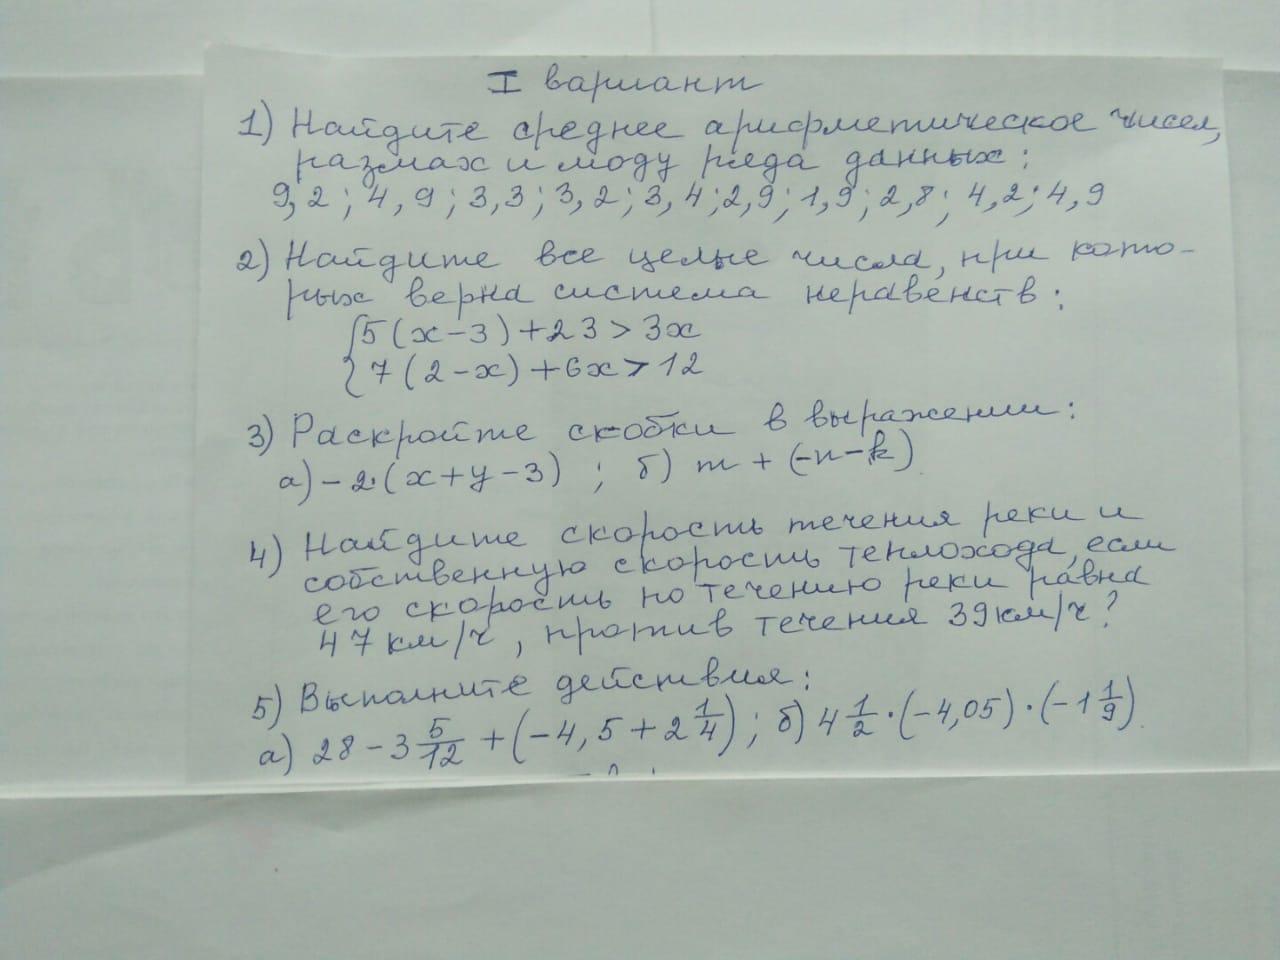 I вариант
1) Найдите среднее арифметическое чисел,
размах и моду ряда данных:
9,2; 4,9; 3,3; 3,2; 3,4; 2,9; 1,9; 2,8; 4,2; 4,9
2) Найдите все целые числа, при кото-
рых верна система неравенств:
{5(x-3)+23>3x
7(2-x)+6x>12
3) Раскройте скобки в выражении:
а) -2·(x+y-3) ; б) m+(-n-k)
4) Найдите скорость течения реки и
собственную скорость теплохода, если
его скорость по течению реки равна
47 км/ч, против течения 39 км/ч?
5) Выполните действия:
а) 28 - 3 5/12 + (-4,5 + 2 1/4); б) 4 1/2 · (-4,05) · (-1 1/9)